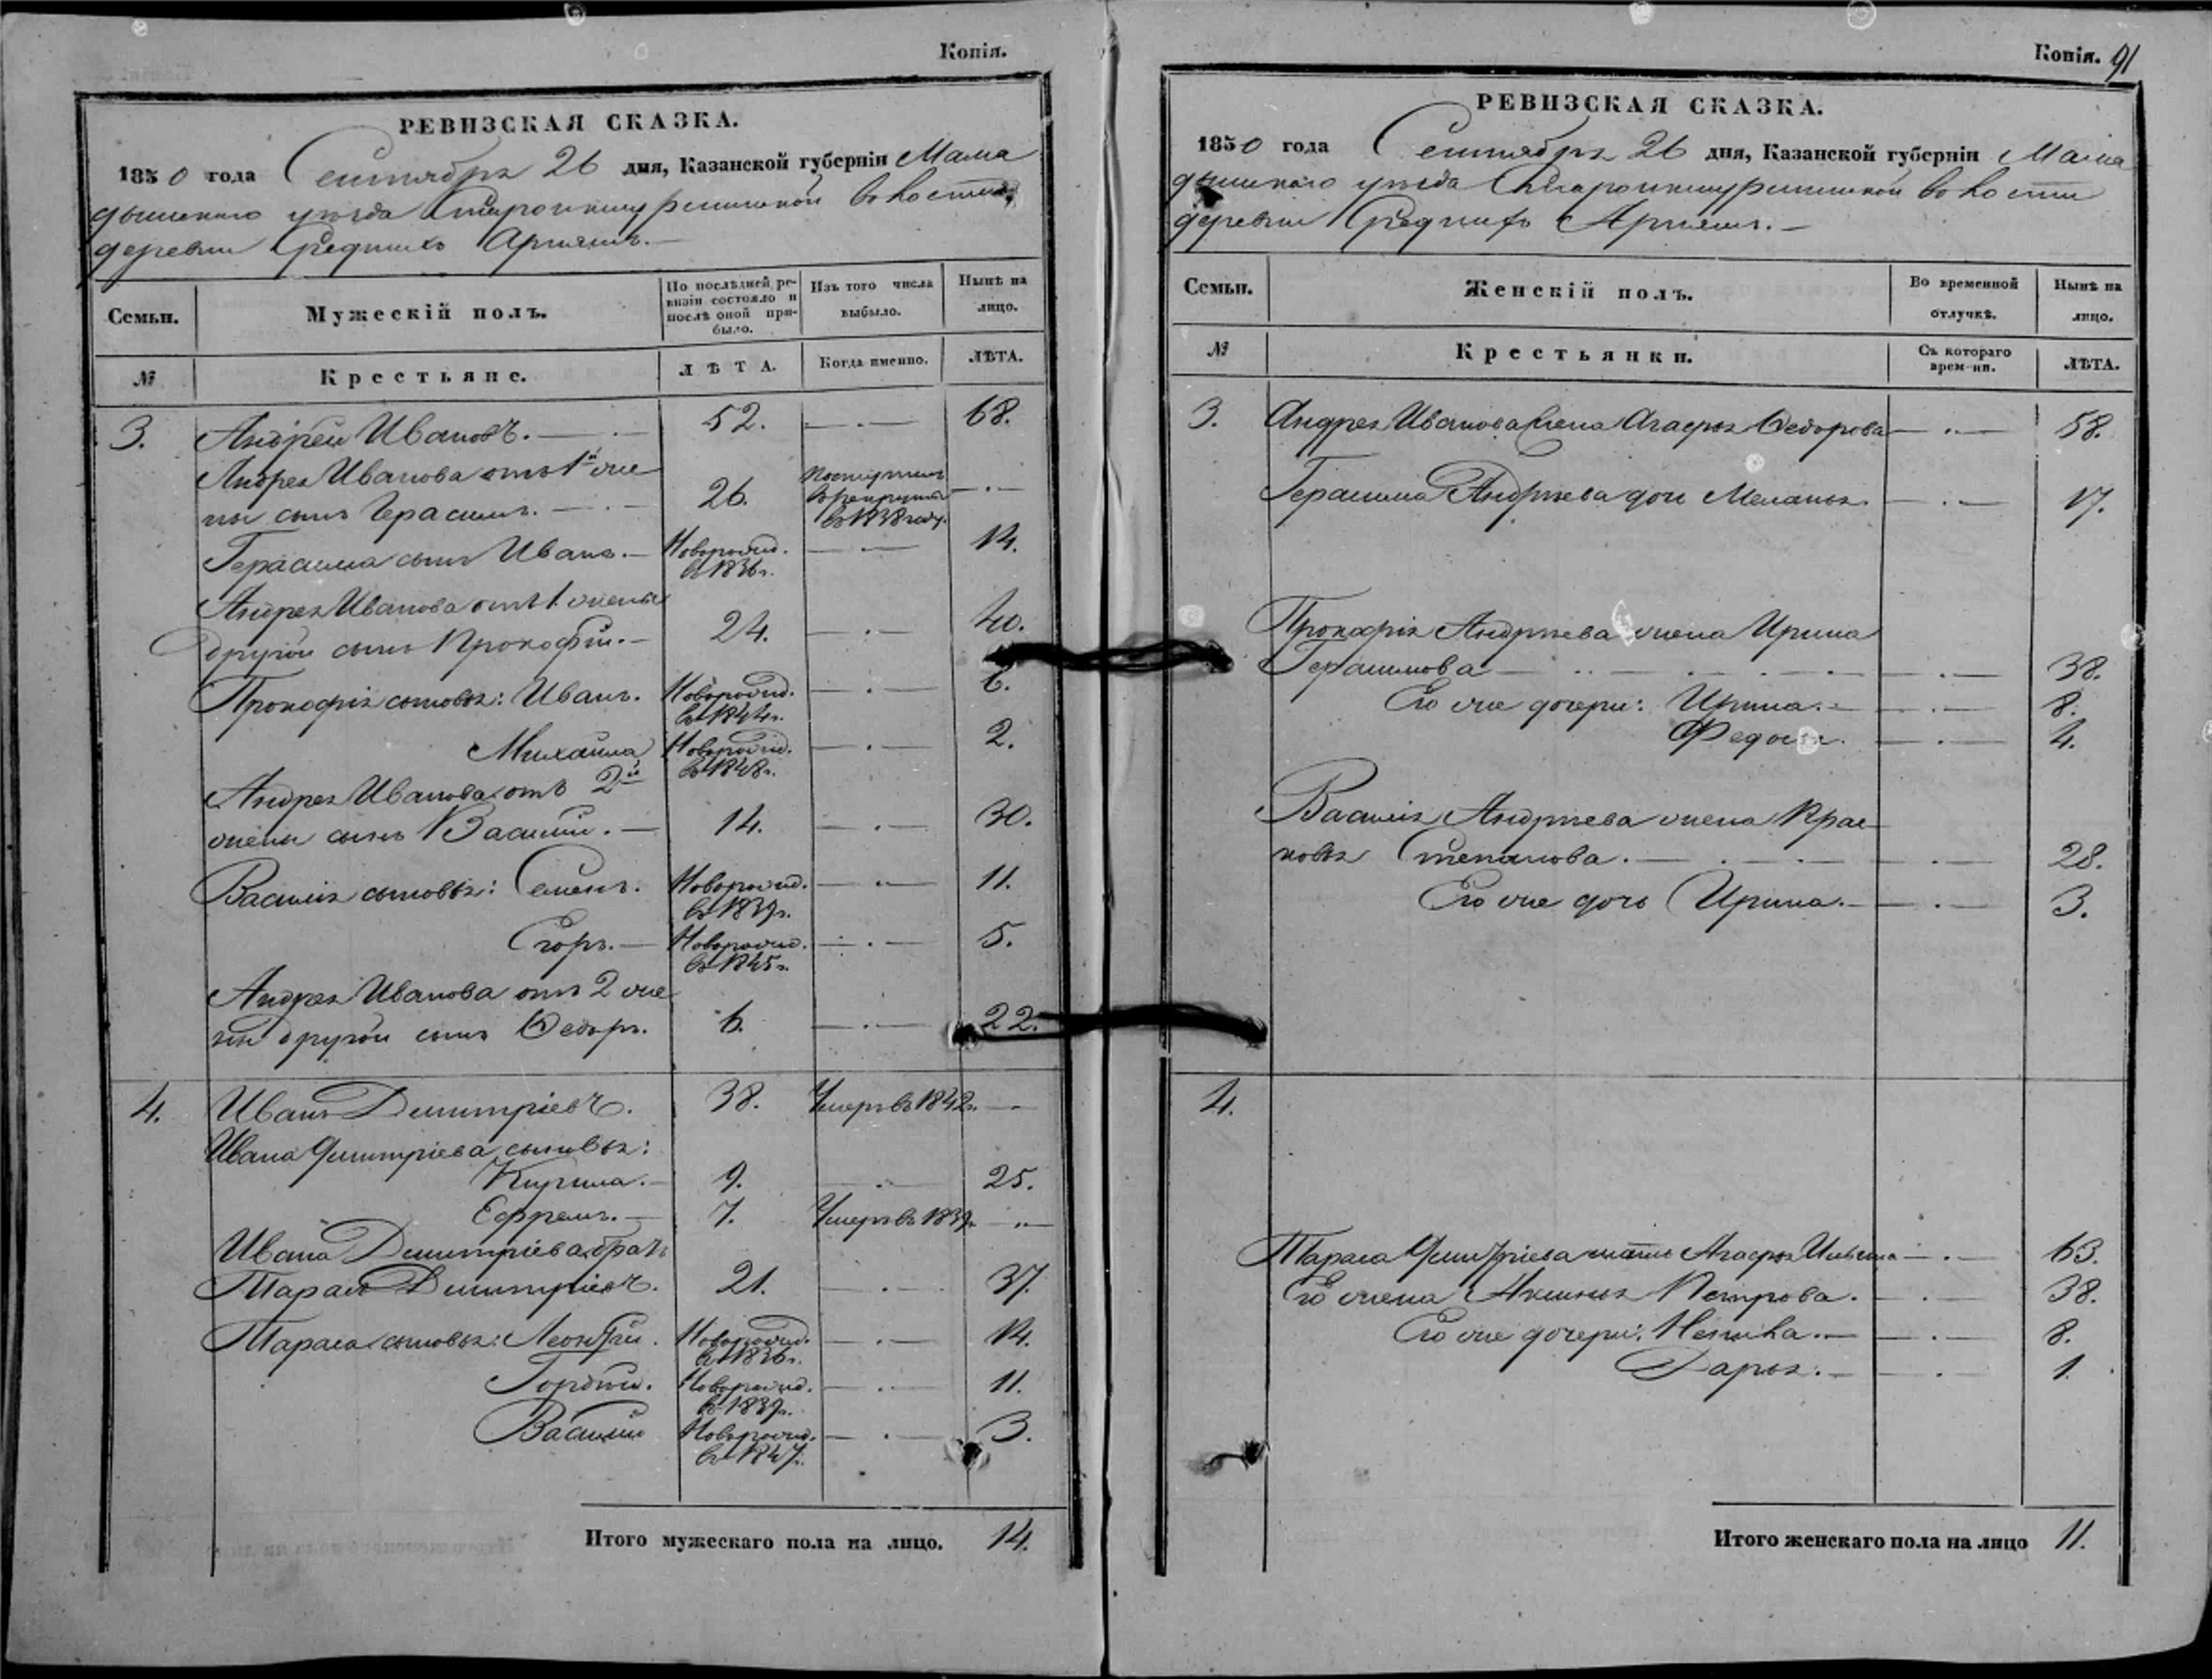 Копія.
РЕВИЗСКАЯ СКАЗКА.
1850 года Сентября 26 дня, Казанской губерніи Мама
дышскаго уѣзда волости
деревни Среднихъ
Семьи.
Мужескій полъ.
По послѣдней ре-
визіи состояло и
послѣ оной при-
было.
Изъ того числа
выбыло.
Нынѣ на
лицо.
№
Крестьяне.
ЛѢТА.
Когда именно.
ЛѢТА.
3. Андрей Ивановъ. 52. 68.
Андрея Иванова отъ 1й же
ны сынъ Герасимъ. 26. Поступилъ
в рекруты
въ 1838 году.
Герасима сынъ Иванъ. Новорожд. 14.
въ 1836 г.
Андрея Иванова отъ 1 жены
другой сынъ Прокофій. 24. 40.
Прокофія сыновья: Иванъ. Новорожд. 6.
въ 1844 г.
Михайла Новорожд. 2.
въ 1848 г.
Андрея Иванова отъ 2й
жены сынъ Василій. 14. 30.
Василія сыновья: Семенъ. Новорожд. 11.
въ 1839 г.
Егоръ. Новорожд. 5.
въ 1845 г.
Андрея Иванова отъ 2 же
ны другой сынъ Ѳедоръ. 6. 22.
4. Иванъ Димитріевъ. 38. Умеръ въ 1842 г.
Ивана Димитріева сыновья:
Кирила. 9. 25.
Ефремъ. 7. Умеръ въ 1839 г.
Ивана Димитріева братъ
Тарасъ Димитріевъ. 21. 37.
Тараса сыновья: Леонтій. Новорожд. 14.
въ 1836 г.
Гордѣй. Новорожд. 11.
въ 1839 г.
Василій Новорожд. 3.
въ 1847 г.
Итого мужескаго пола на лицо. 14.
Копія. 91
РЕВИЗСКАЯ СКАЗКА.
1850 года Сентября 26 дня, Казанской губерніи Мама
дышскаго уѣзда волости
деревни Среднихъ
Семьи.
Женскій полъ.
Во временной
отлучкѣ.
Нынѣ на
лицо.
№
Крестьянки.
Съ котораго
врем-ни.
ЛѢТА.
3. Андрея Иванова жена Агафья Ѳедорова 58.
Герасима Андрѣева дочь Меланья. 17.
Прокофія Андрѣева жена Ирина
Герасимова 38.
Его же дочери: Ирина. 8.
Федосья. 4.
Василія Андрѣева жена Прас
ковья Степанова. 28.
Его же дочь Ирина. 3.
4.
Тараса Димитріева мать Агафья Ильина 63.
Его жена Аксинья Петрова. 38.
Его же дочери: Ненила. 8.
Дарья. 1.
Итого женскаго пола на лицо 11.